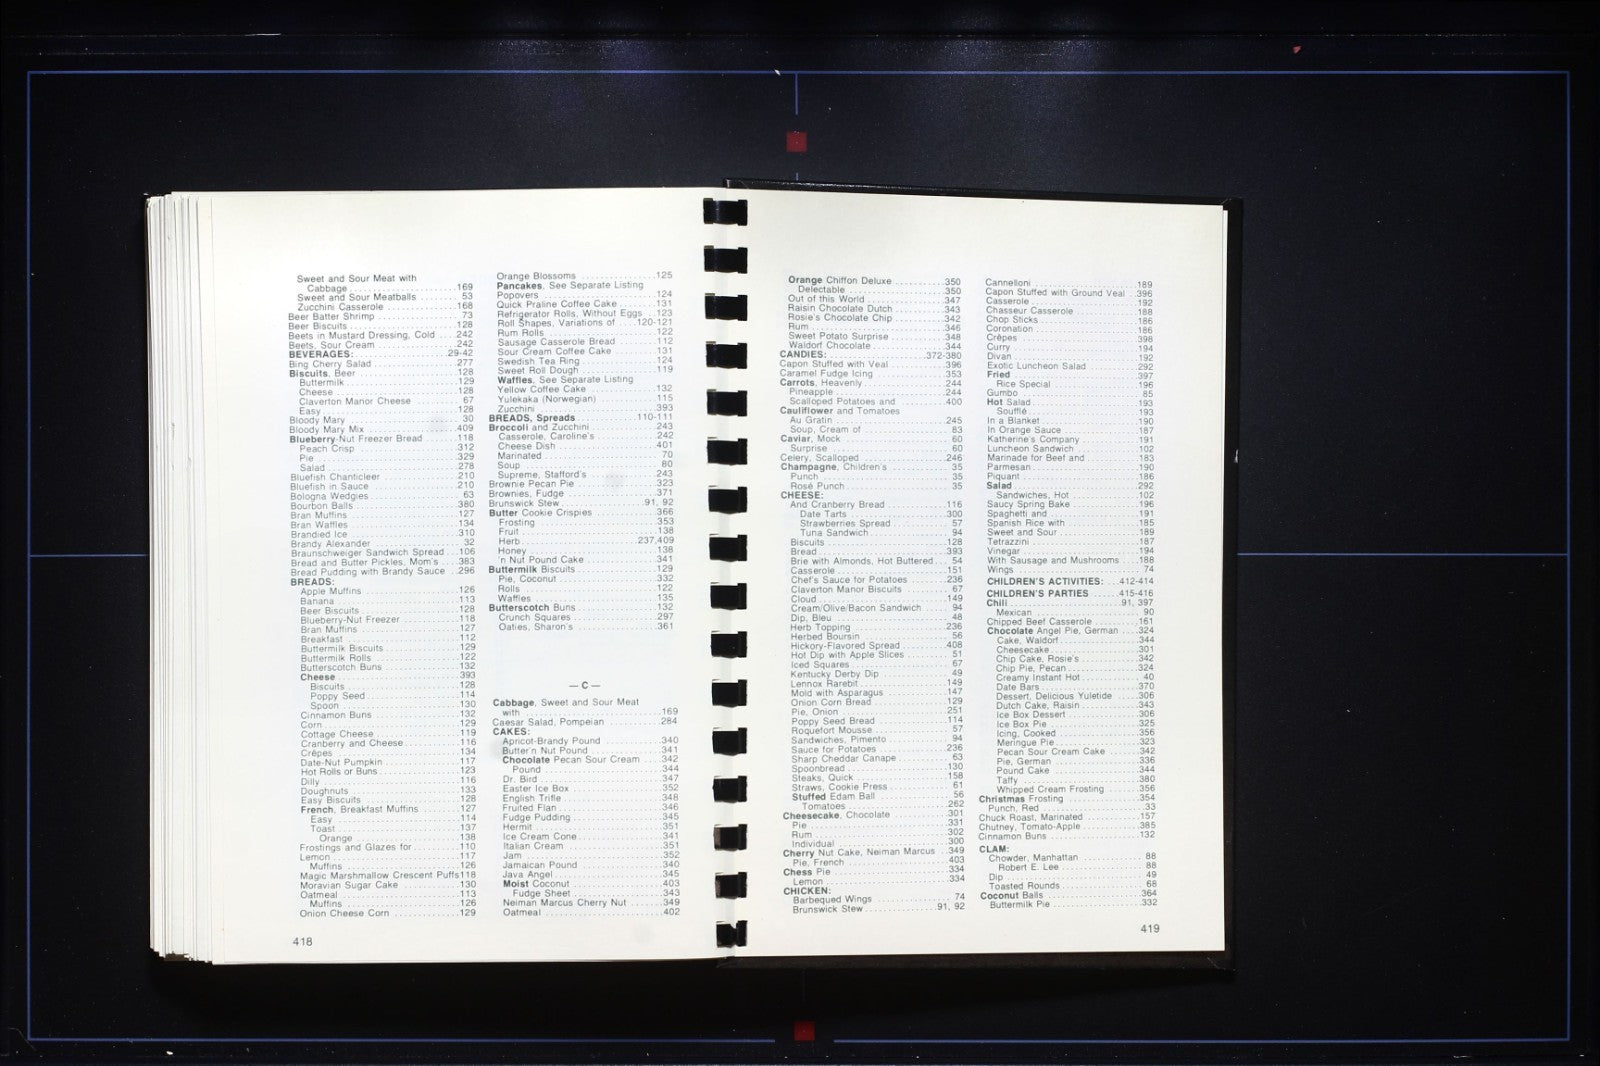 Sweet and Sour Meat with
Cabbage ..................169
Sweet and Sour Meatballs ......53
Zucchini Casserole .............168
Beer Batter Shrimp ................73
Beer Biscuits .....................128
Beets in Mustard Dressing, Cold ...242
Beets, Sour Cream ................242
BEVERAGES: ..................29-42
Bing Cherry Salad .................277
Biscuits, Beer ....................128
Buttermilk .....................129
Cheese ........................128
Claverton Manor Cheese .........67
Easy ...........................128
Bloody Mary ......................30
Bloody Mary Mix ..................409
Blueberry-Nut Freezer Bread .......118
Peach Crisp ....................312
Pie ............................329
Salad ..........................278
Bluefish Chanticleer ..............210
Bluefish in Sauce .................210
Bologna Wedgies ..................63
Bourbon Balls ....................380
Bran Muffins .....................127
Bran Waffles .....................134
Brandied Ice .....................310
Brandy Alexander .................32
Braunschweiger Sandwich Spread ...106
Bread and Butter Pickles, Mom's ...383
Bread Pudding with Brandy Sauce ..296
BREADS:
Apple Muffins ..................126
Banana ........................113
Beer Biscuits ...................128
Blueberry-Nut Freezer ...........118
Bran Muffins ...................127
Breakfast ......................112
Buttermilk Biscuits ..............129
Buttermilk Rolls ................122
Butterscotch Buns ...............132
Cheese ........................393
Biscuits ......................128
Poppy Seed ...................114
Spoon ........................130
Cinnamon Buns .................132
Corn ..........................129
Cottage Cheese .................119
Cranberry and Cheese ............116
Crêpes ........................134
Date-Nut Pumpkin ...............117
Hot Rolls or Buns ................123
Dilly ..........................116
Doughnuts .....................133
Easy Biscuits ...................128
French, Breakfast Muffins ........127
Easy .........................114
Toast ........................137
Orange .....................138
Frostings and Glazes for .........110
Lemon ........................117
Muffins ......................126
Magic Marshmallow Crescent Puffs118
Moravian Sugar Cake ............130
Oatmeal .......................113
Muffins ......................126
Onion Cheese Corn ..............129
418
Orange Blossoms ...............125
Pancakes, See Separate Listing
Popovers ......................124
Quick Praline Coffee Cake ........131
Refrigerator Rolls, Without Eggs ..123
Roll Shapes, Variations of ....120-121
Rum Rolls .....................122
Sausage Casserole Bread ........112
Sour Cream Coffee Cake .........131
Swedish Tea Ring ...............124
Sweet Roll Dough ...............119
Waffles, See Separate Listing
Yellow Coffee Cake ..............132
Yulekaka (Norwegian) ...........115
Zucchini .......................393
BREADS, Spreads ............110-111
Broccoli and Zucchini .............243
Casserole, Caroline's ............242
Cheese Dish ...................401
Marinated ......................70
Soup ..........................80
Supreme, Stafford's .............243
Brownie Pecan Pie ................323
Brownies, Fudge ..................371
Brunswick Stew .................91, 92
Butter Cookie Crispies ............366
Frosting .......................353
Fruit ..........................138
Herb ......................237,409
Honey .........................138
'n Nut Pound Cake ..............341
Buttermilk Biscuits ...............129
Pie, Coconut ...................332
Rolls ..........................122
Waffles ........................135
Butterscotch Buns ................132
Crunch Squares .................297
Oaties, Sharon's ................361
— C —
Cabbage, Sweet and Sour Meat
with ..........................169
Caesar Salad, Pompeian ...........284
CAKES:
Apricot-Brandy Pound ...........340
Butter'n Nut Pound ..............341
Chocolate Pecan Sour Cream ....342
Pound .......................344
Dr. Bird .......................347
Easter Ice Box .................352
English Trifle ...................348
Fruited Flan ....................346
Fudge Pudding .................345
Hermit ........................351
Ice Cream Cone .................341
Italian Cream ..................351
Jam ..........................352
Jamaican Pound ................340
Java Angel .....................345
Moist Coconut ..................403
Fudge Sheet ..................343
Neiman Marcus Cherry Nut .......349
Oatmeal .......................402
Orange Chiffon Deluxe ..........350
Delectable ....................350
Out of this World ................347
Raisin Chocolate Dutch ..........343
Rosie's Chocolate Chip ..........342
Rum ..........................346
Sweet Potato Surprise ...........348
Waldorf Chocolate ..............344
CANDIES: ....................372-380
Capon Stuffed with Veal ...........396
Caramel Fudge Icing ..............353
Carrots, Heavenly ................244
Pineapple .....................244
Scalloped Potatoes and .........400
Cauliflower and Tomatoes
Au Gratin ......................245
Soup, Cream of .................83
Caviar, Mock .....................60
Surprise .......................60
Celery, Scalloped .................246
Champagne, Children's ............35
Punch .........................35
Rosé Punch ....................35
CHEESE:
And Cranberry Bread ............116
Date Tarts ....................300
Strawberries Spread ............57
Tuna Sandwich .................94
Biscuits .......................128
Bread .........................393
Brie with Almonds, Hot Buttered ...54
Casserole ......................151
Chef's Sauce for Potatoes ........236
Claverton Manor Biscuits .........67
Cloud .........................149
Cream/Olive/Bacon Sandwich .....94
Dip, Bleu .......................48
Herb Topping ..................236
Herbed Boursin .................56
Hickory-Flavored Spread .........408
Hot Dip with Apple Slices .........51
Iced Squares ...................67
Kentucky Derby Dip .............49
Lennox Rarebit .................149
Mold with Asparagus ............147
Onion Corn Bread ..............129
Pie, Onion .....................251
Poppy Seed Bread ..............114
Roquefort Mousse ...............57
Sandwiches, Pimento ............94
Sauce for Potatoes ..............236
Sharp Cheddar Canape ..........63
Spoonbread ....................130
Steaks, Quick ..................158
Straws, Cookie Press ............61
Stuffed Edam Ball ...............56
Tomatoes ....................262
Cheesecake, Chocolate ...........301
Pie ...........................331
Rum ..........................302
Individual ......................300
Cherry Nut Cake, Neiman Marcus ..349
Pie, French ....................403
Chess Pie .......................334
Lemon ........................334
CHICKEN:
Barbequed Wings ...............74
Brunswick Stew ..............91, 92
Cannelloni .....................189
Capon Stuffed with Ground Veal ..396
Casserole ......................192
Chasseur Casserole .............188
Chop Sticks ....................186
Coronation .....................186
Crêpes ........................398
Curry .........................194
Divan .........................192
Exotic Luncheon Salad ..........292
Fried .........................397
Rice Special ..................196
Gumbo ........................85
Hot Salad ......................193
Soufflé .......................193
In a Blanket ....................190
In Orange Sauce ................187
Katherine's Company ............191
Luncheon Sandwich .............102
Marinade for Beef and ...........183
Parmesan ......................190
Piquant .......................186
Salad .........................292
Sandwiches, Hot ..............102
Saucy Spring Bake ..............196
Spaghetti and ..................191
Spanish Rice with ...............185
Sweet and Sour .................189
Tetrazzini ......................187
Vinegar .......................194
With Sausage and Mushrooms ....188
Wings .........................74
CHILDREN'S ACTIVITIES: ...412-414
CHILDREN'S PARTIES ......415-416
Chili .......................91, 397
Mexican .......................90
Chipped Beef Casserole ...........161
Chocolate Angel Pie, German ....324
Cake, Waldorf ..................344
Cheesecake ....................301
Chip Cake, Rosie's ..............342
Chip Pie, Pecan ................324
Creamy Instant Hot ..............40
Date Bars ......................370
Dessert, Delicious Yuletide .......306
Dutch Cake, Raisin ..............343
Ice Box Dessert .................306
Ice Box Pie ....................325
Icing, Cooked ..................356
Meringue Pie ...................323
Pecan Sour Cream Cake .........342
Pie, German ...................336
Pound Cake ....................344
Taffy .........................380
Whipped Cream Frosting .........356
Christmas Frosting ...............354
Punch, Red .....................33
Chuck Roast, Marinated ...........157
Chutney, Tomato-Apple ............385
Cinnamon Buns ..................132
CLAM:
Chowder, Manhattan .............88
Robert E. Lee ..................88
Dip ............................49
Toasted Rounds .................68
Coconut Balls ....................364
Buttermilk Pie ..................332
419